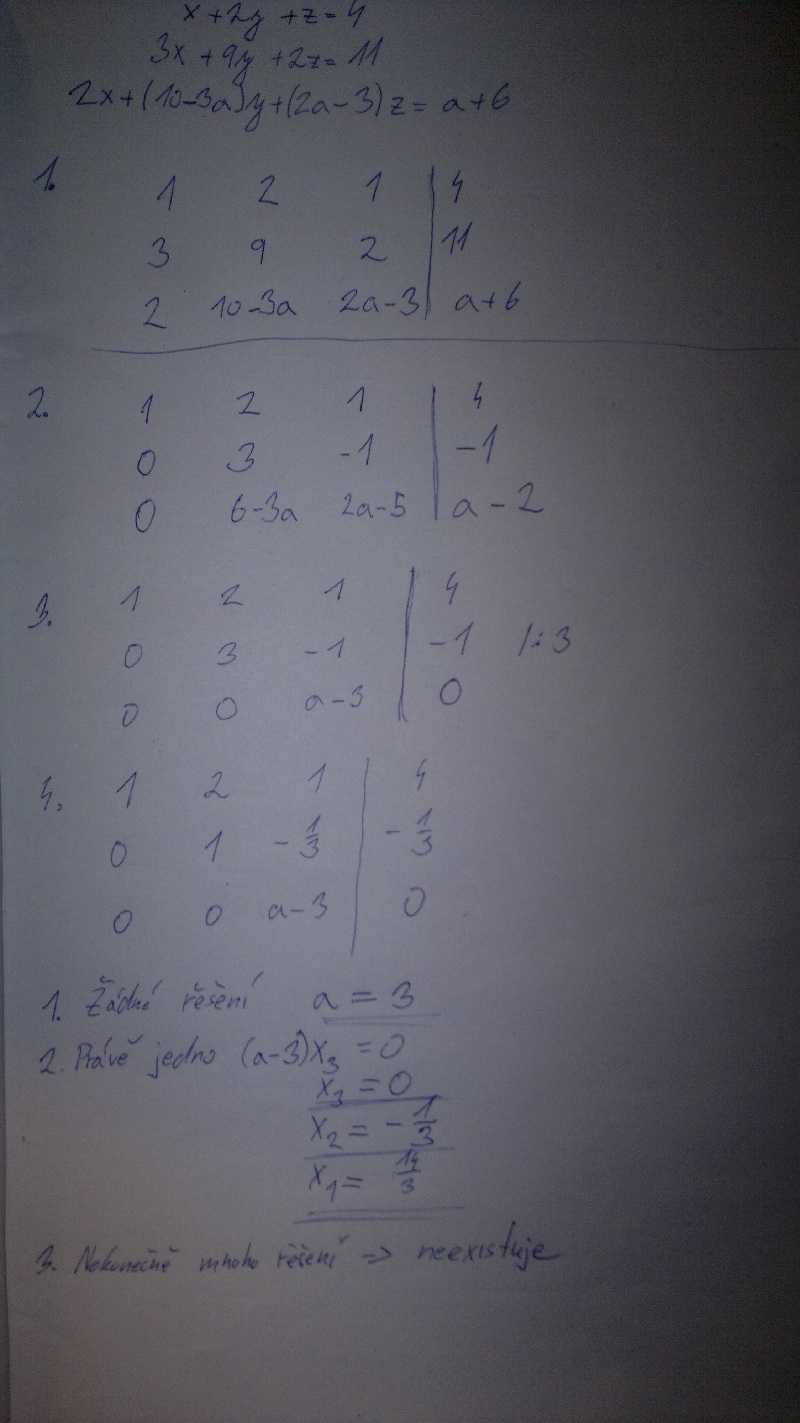 x+2y+z=4
3x+9y+2z=11
2x+(10-3a)y+(2a-3)z= a+6
1. 1 2 1 | 4
3 9 2 | 11
2 10-3a 2a-3 | a+6
2. 1 2 1 | 4
0 3 -1 | -1
0 6-3a 2a-5 | a-2
3. 1 2 1 | 4
0 3 -1 | -1 /:3
0 0 a-3 | 0
4. 1 2 1 | 4
0 1 -1/3 | -1/3
0 0 a-3 | 0
1. Žádné řešení a = 3
2. Právě jedno (a-3)x₃ = 0
x₃ = 0
x₂ = -1/3
x₁ = 14/3
3. Nekonečně mnoho řešení => neexistuje